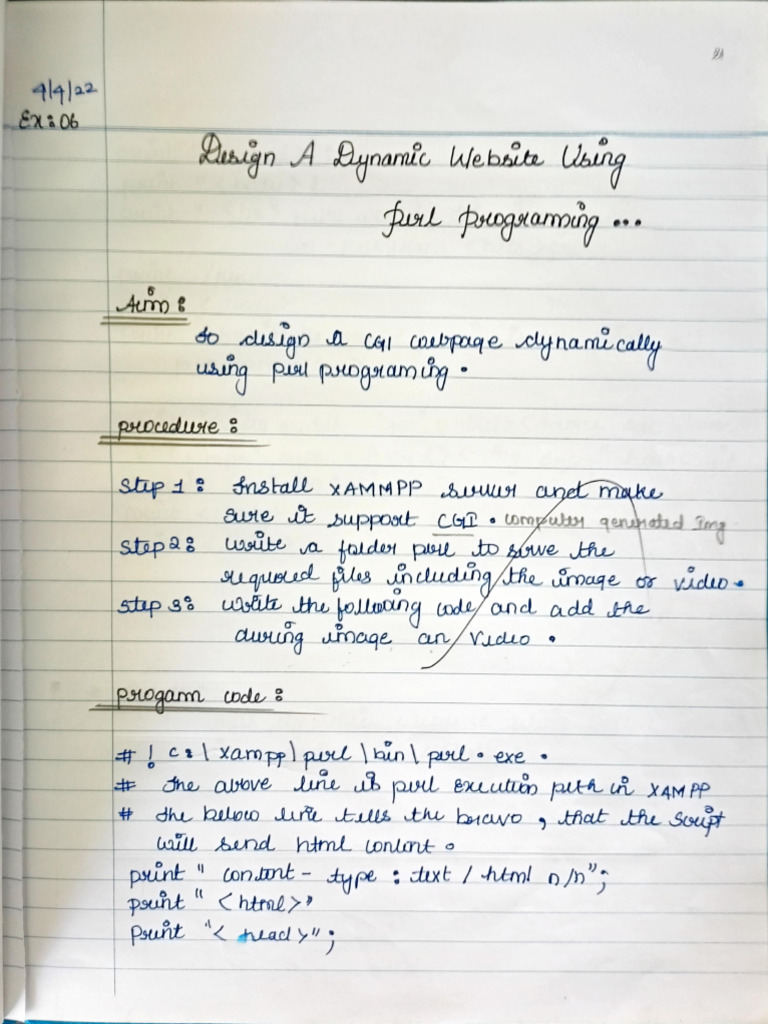 4/4/22
Ex: 06
Design A Dynamic Website Using
perl programing...
Aim:
To design a CGI webpage dynamically
using perl programing.
procedure:
Step 1: Install XAMMPP server and make
sure it support CGI. computer generated Img
Step 2: write a folder perl to serve the
required files including the image or video.
Step 3: write the following code and add the
during image an video.
progam code:
#! c:\xampp\perl\bin\perl.exe.
# The above line is perl execution peth in XAMPP
# The below line tells the bravo, that the script
will send html content.
print "content-type: text/html n/n";
print "<html>"
print "<head>";